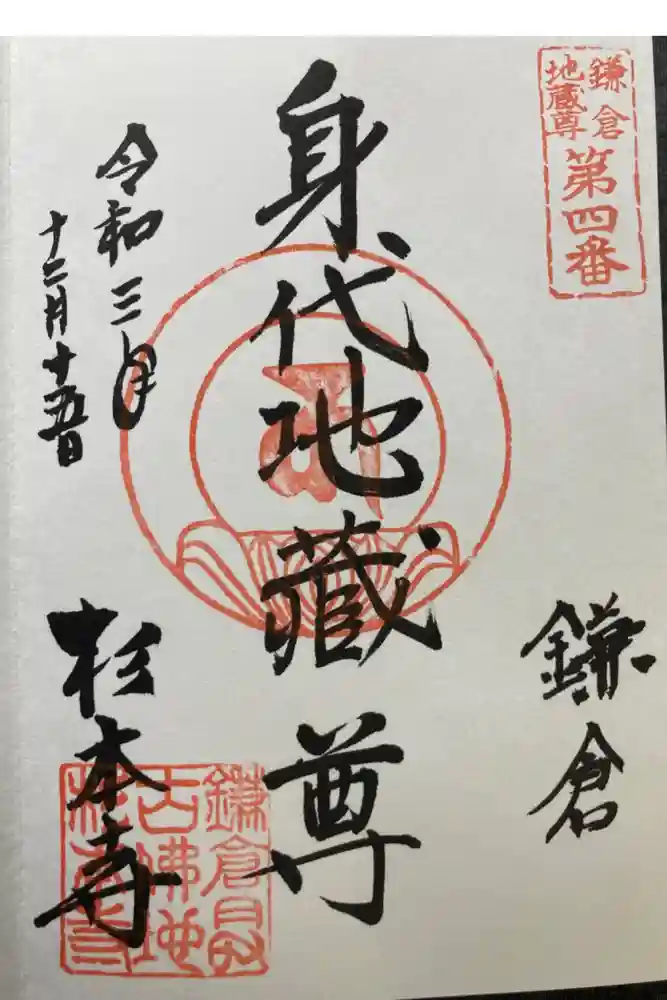 鎌倉
地蔵尊
第四番
鎌倉
身代地蔵尊
令和三年
十二月十五日
杉本寺